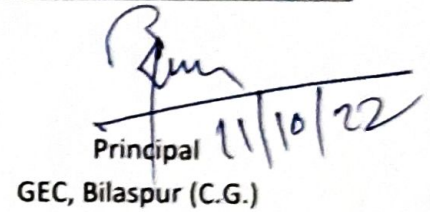 Principal 11/10/22
GEC, Bilaspur (C.G.)